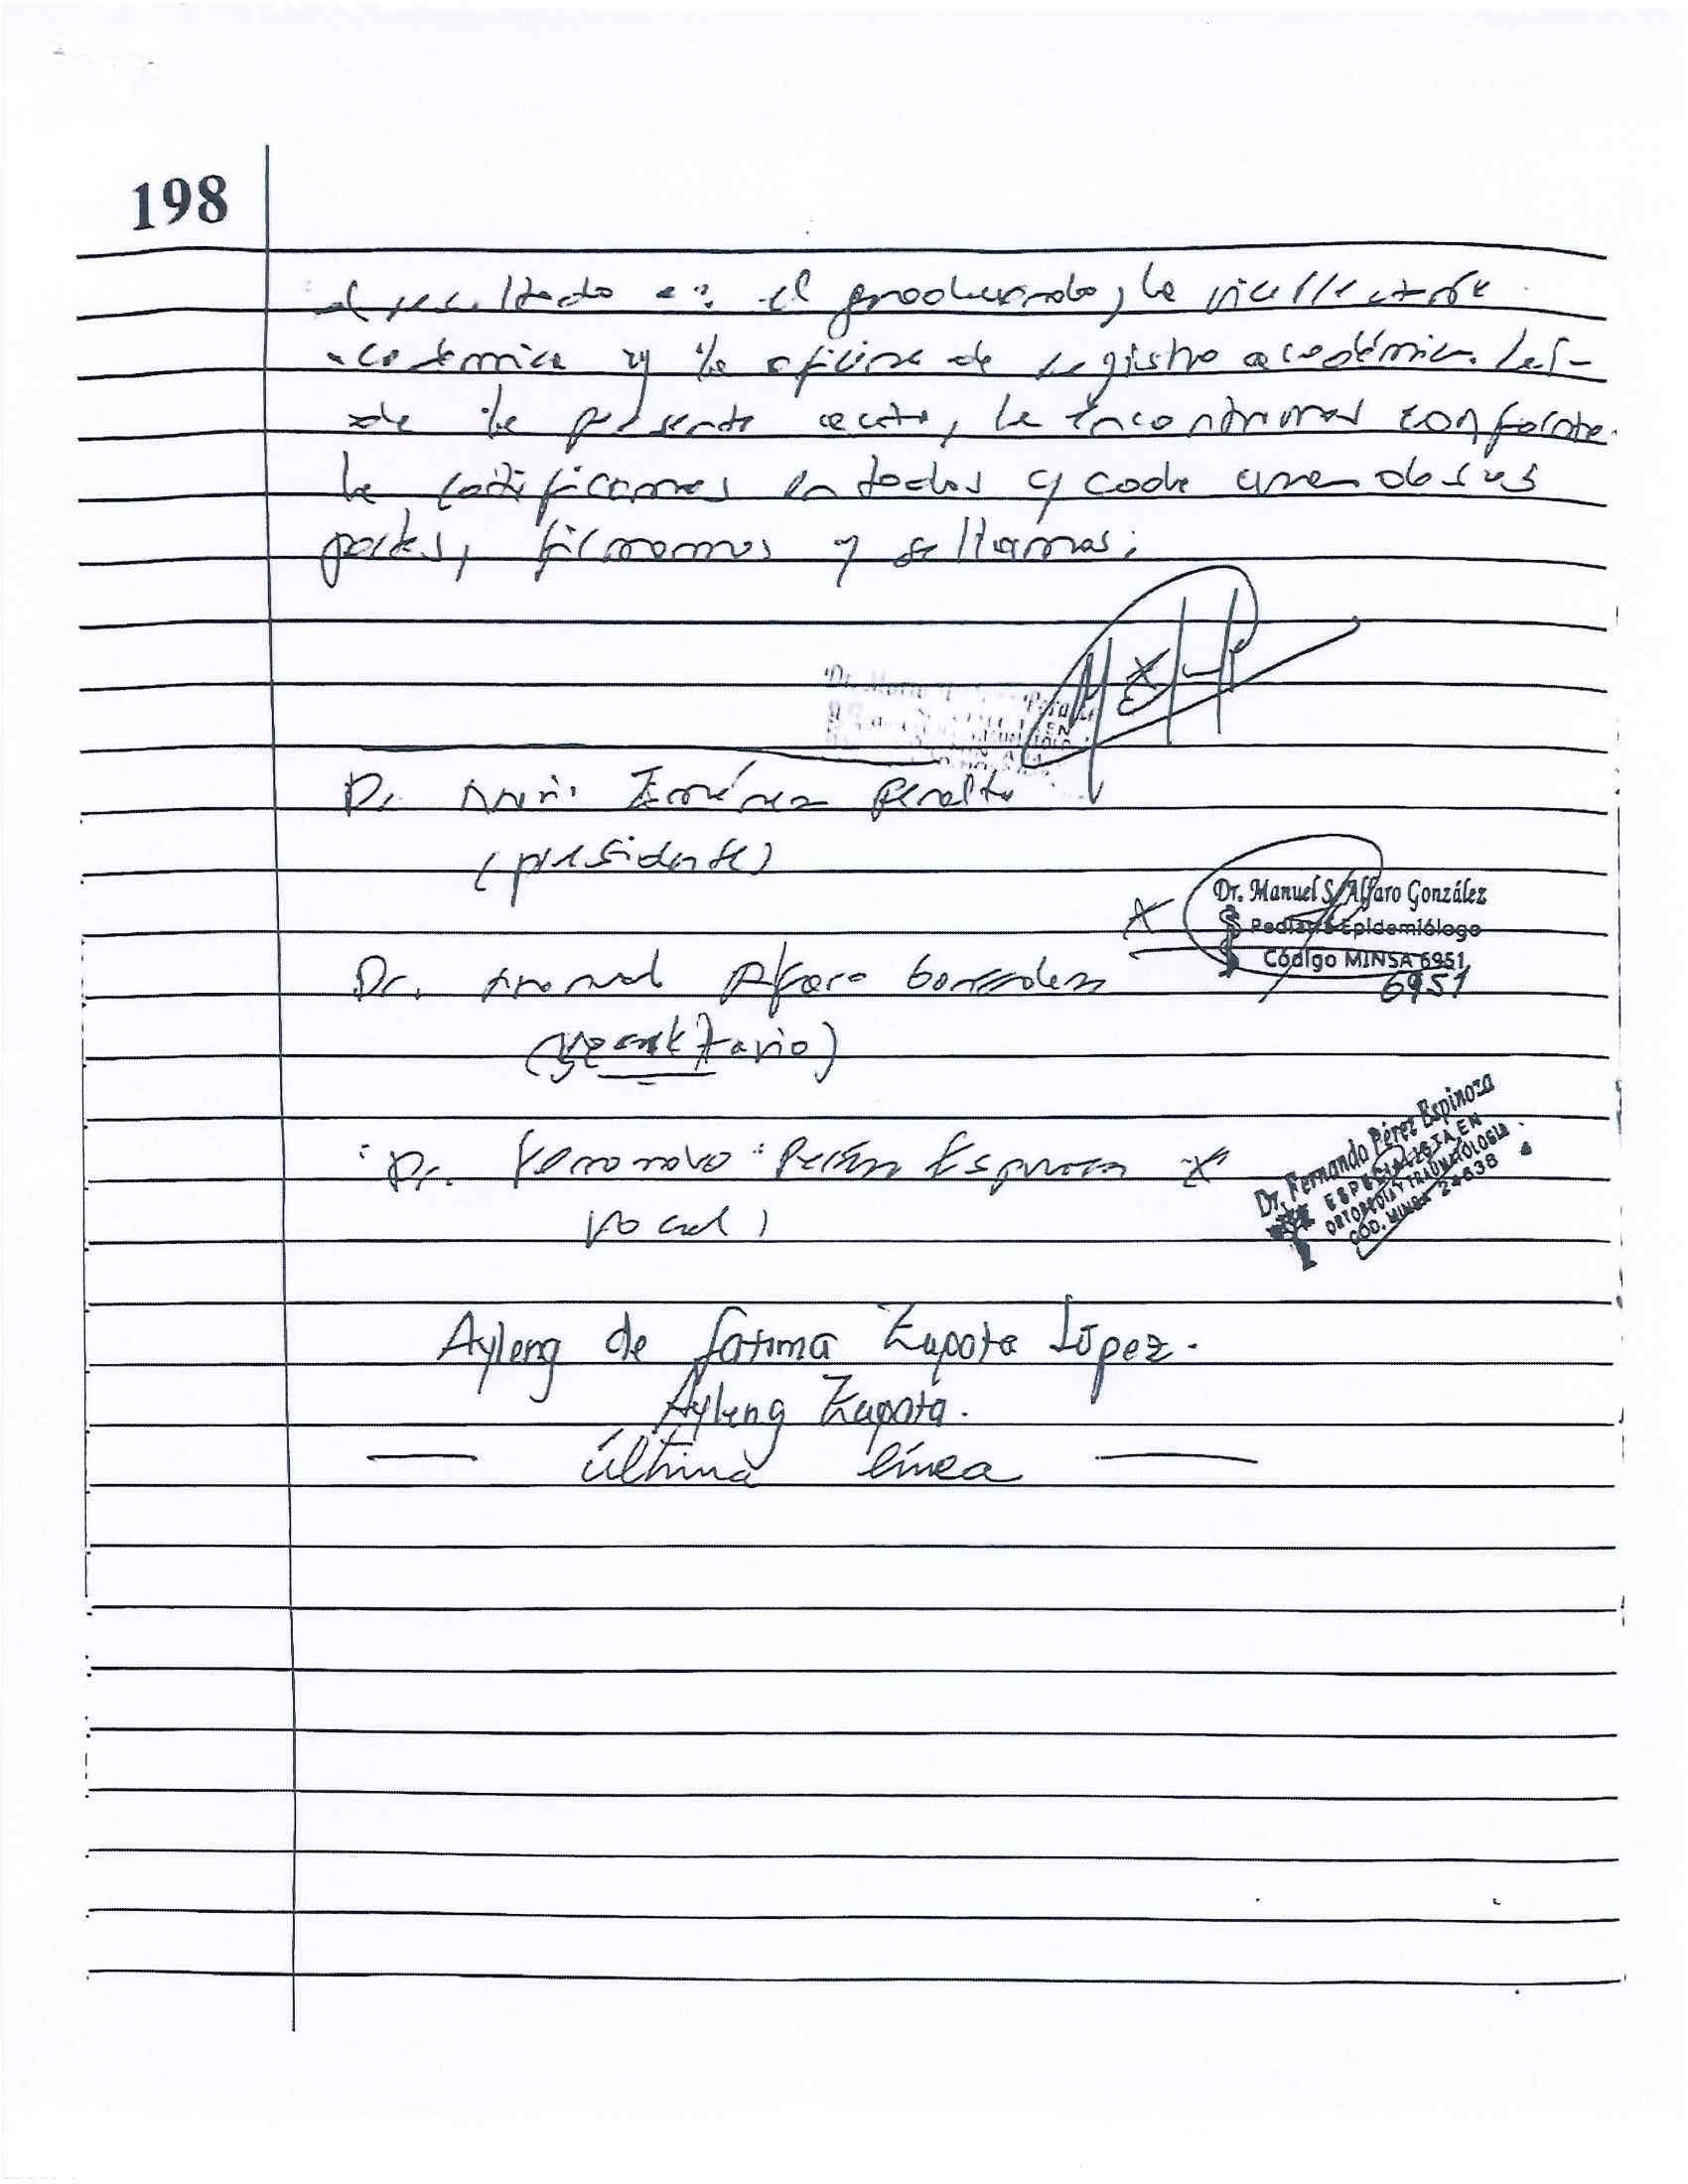 198
el resultado el graduando, la vicerrectoría
académica y la oficina de registro académico. Leí-
da la presente acta, la encontramos conforme.
la ratificamos en todas y cada una de sus
partes, firmamos y sellamos:
Dr. Jiménez Peralta
(presidente)
Dr. Manuel S. Alfaro González
Pediatra Epidemiólogo
Código MINSA 6951
6951
Dr. Manuel Alfaro González
(secretario)
Dr. Fernando Pérez Espinoza
ESPECIALISTA EN
ORTOPEDIA Y TRAUMATOLOGIA
COD. MINSA
Dr. Fernando Pérez Espinoza
vocal)
Ayleng de fatima Zapata López.
Ayleng Zapata.
última línea